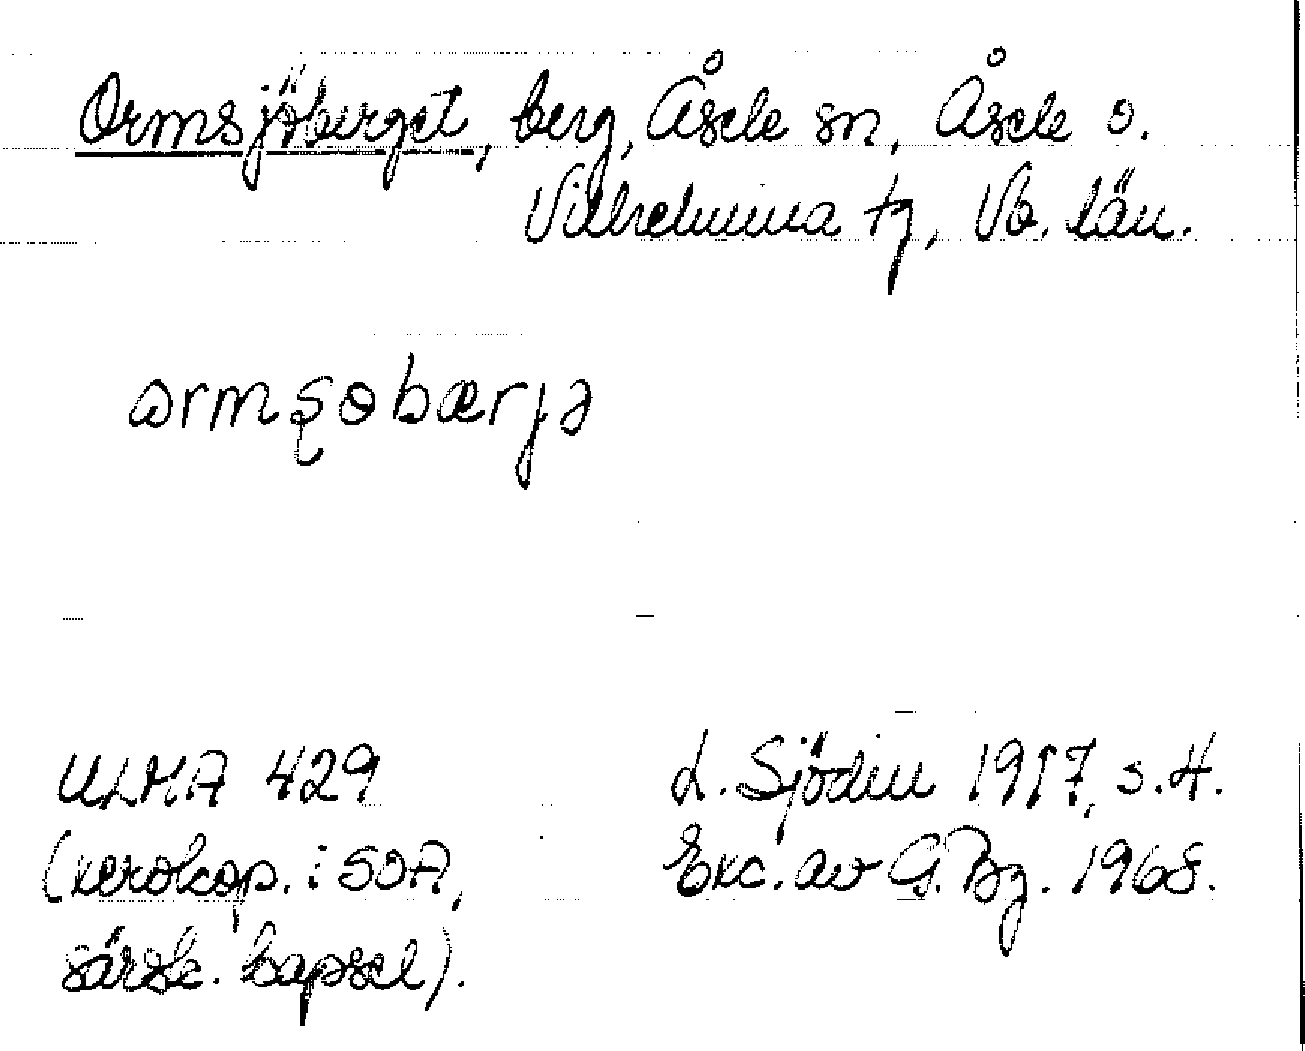 Ormsjöberget, berg, Åsele sn, Åsele o.
Vilhelmina tg, Vb. län.
ormʂɵbærjə
ULMA 429
(xerokop. i SOA,
särsk. kapsel).
L. Sjödin 1917, s. 4.
Exc. av G. Bg. 1968.